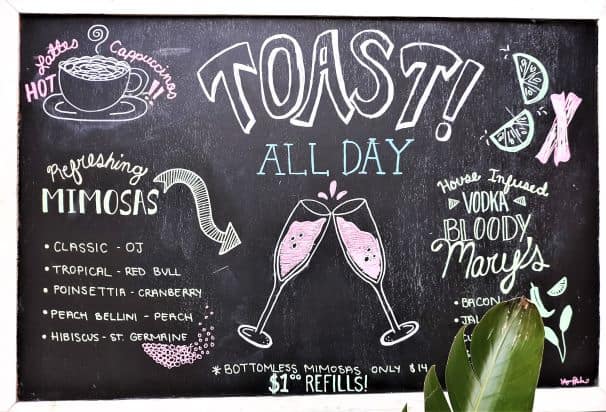 Lattes
Cappuccinos
HOT
!!
TOAST!
ALL DAY
Refreshing
MIMOSAS
• CLASSIC - OJ
• TROPICAL - RED BULL
• POINSETTIA - CRANBERRY
• PEACH BELLINI - PEACH
• HIBISCUS - ST. GERMAINE
House Infused
VODKA
BLOODY
Mary's
• BACON
*BOTTOMLESS MIMOSAS ONLY $14
$1⁰⁰ REFILLS!